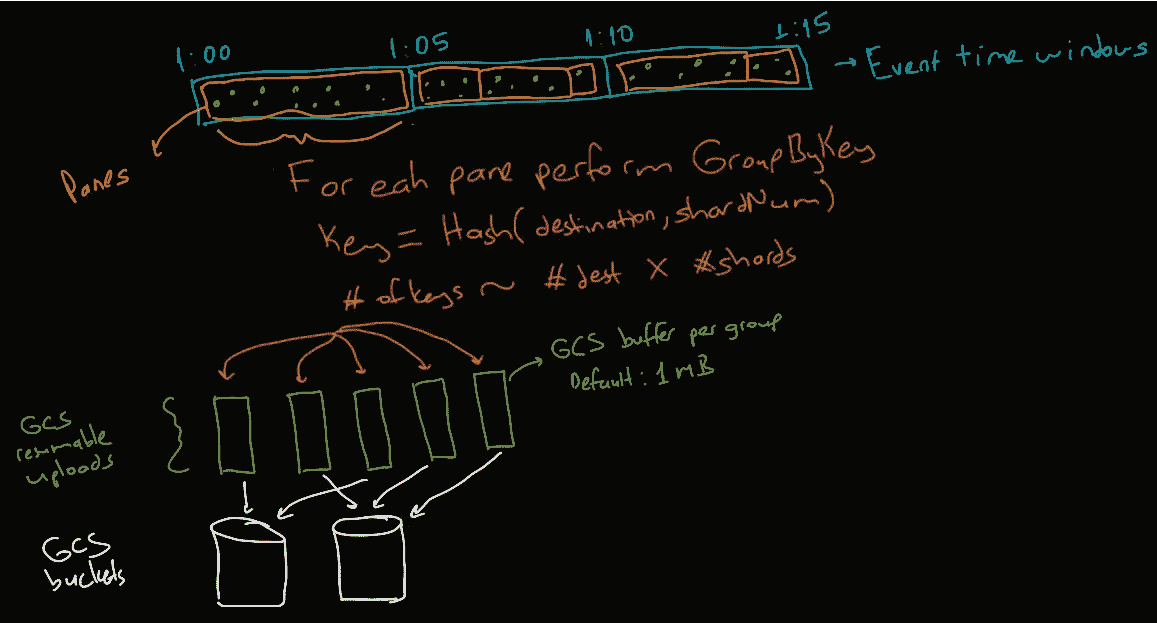 1:00
1:05
1:10
1:15
Event time windows
Panes
For eah pane perform GroupByKey
Key = Hash(destination, shardNum)
# of keys ~ # dest X #shards
GCS buffer per group
Default: 1 MB
GCS
resumable
uploads
GCS
buckets